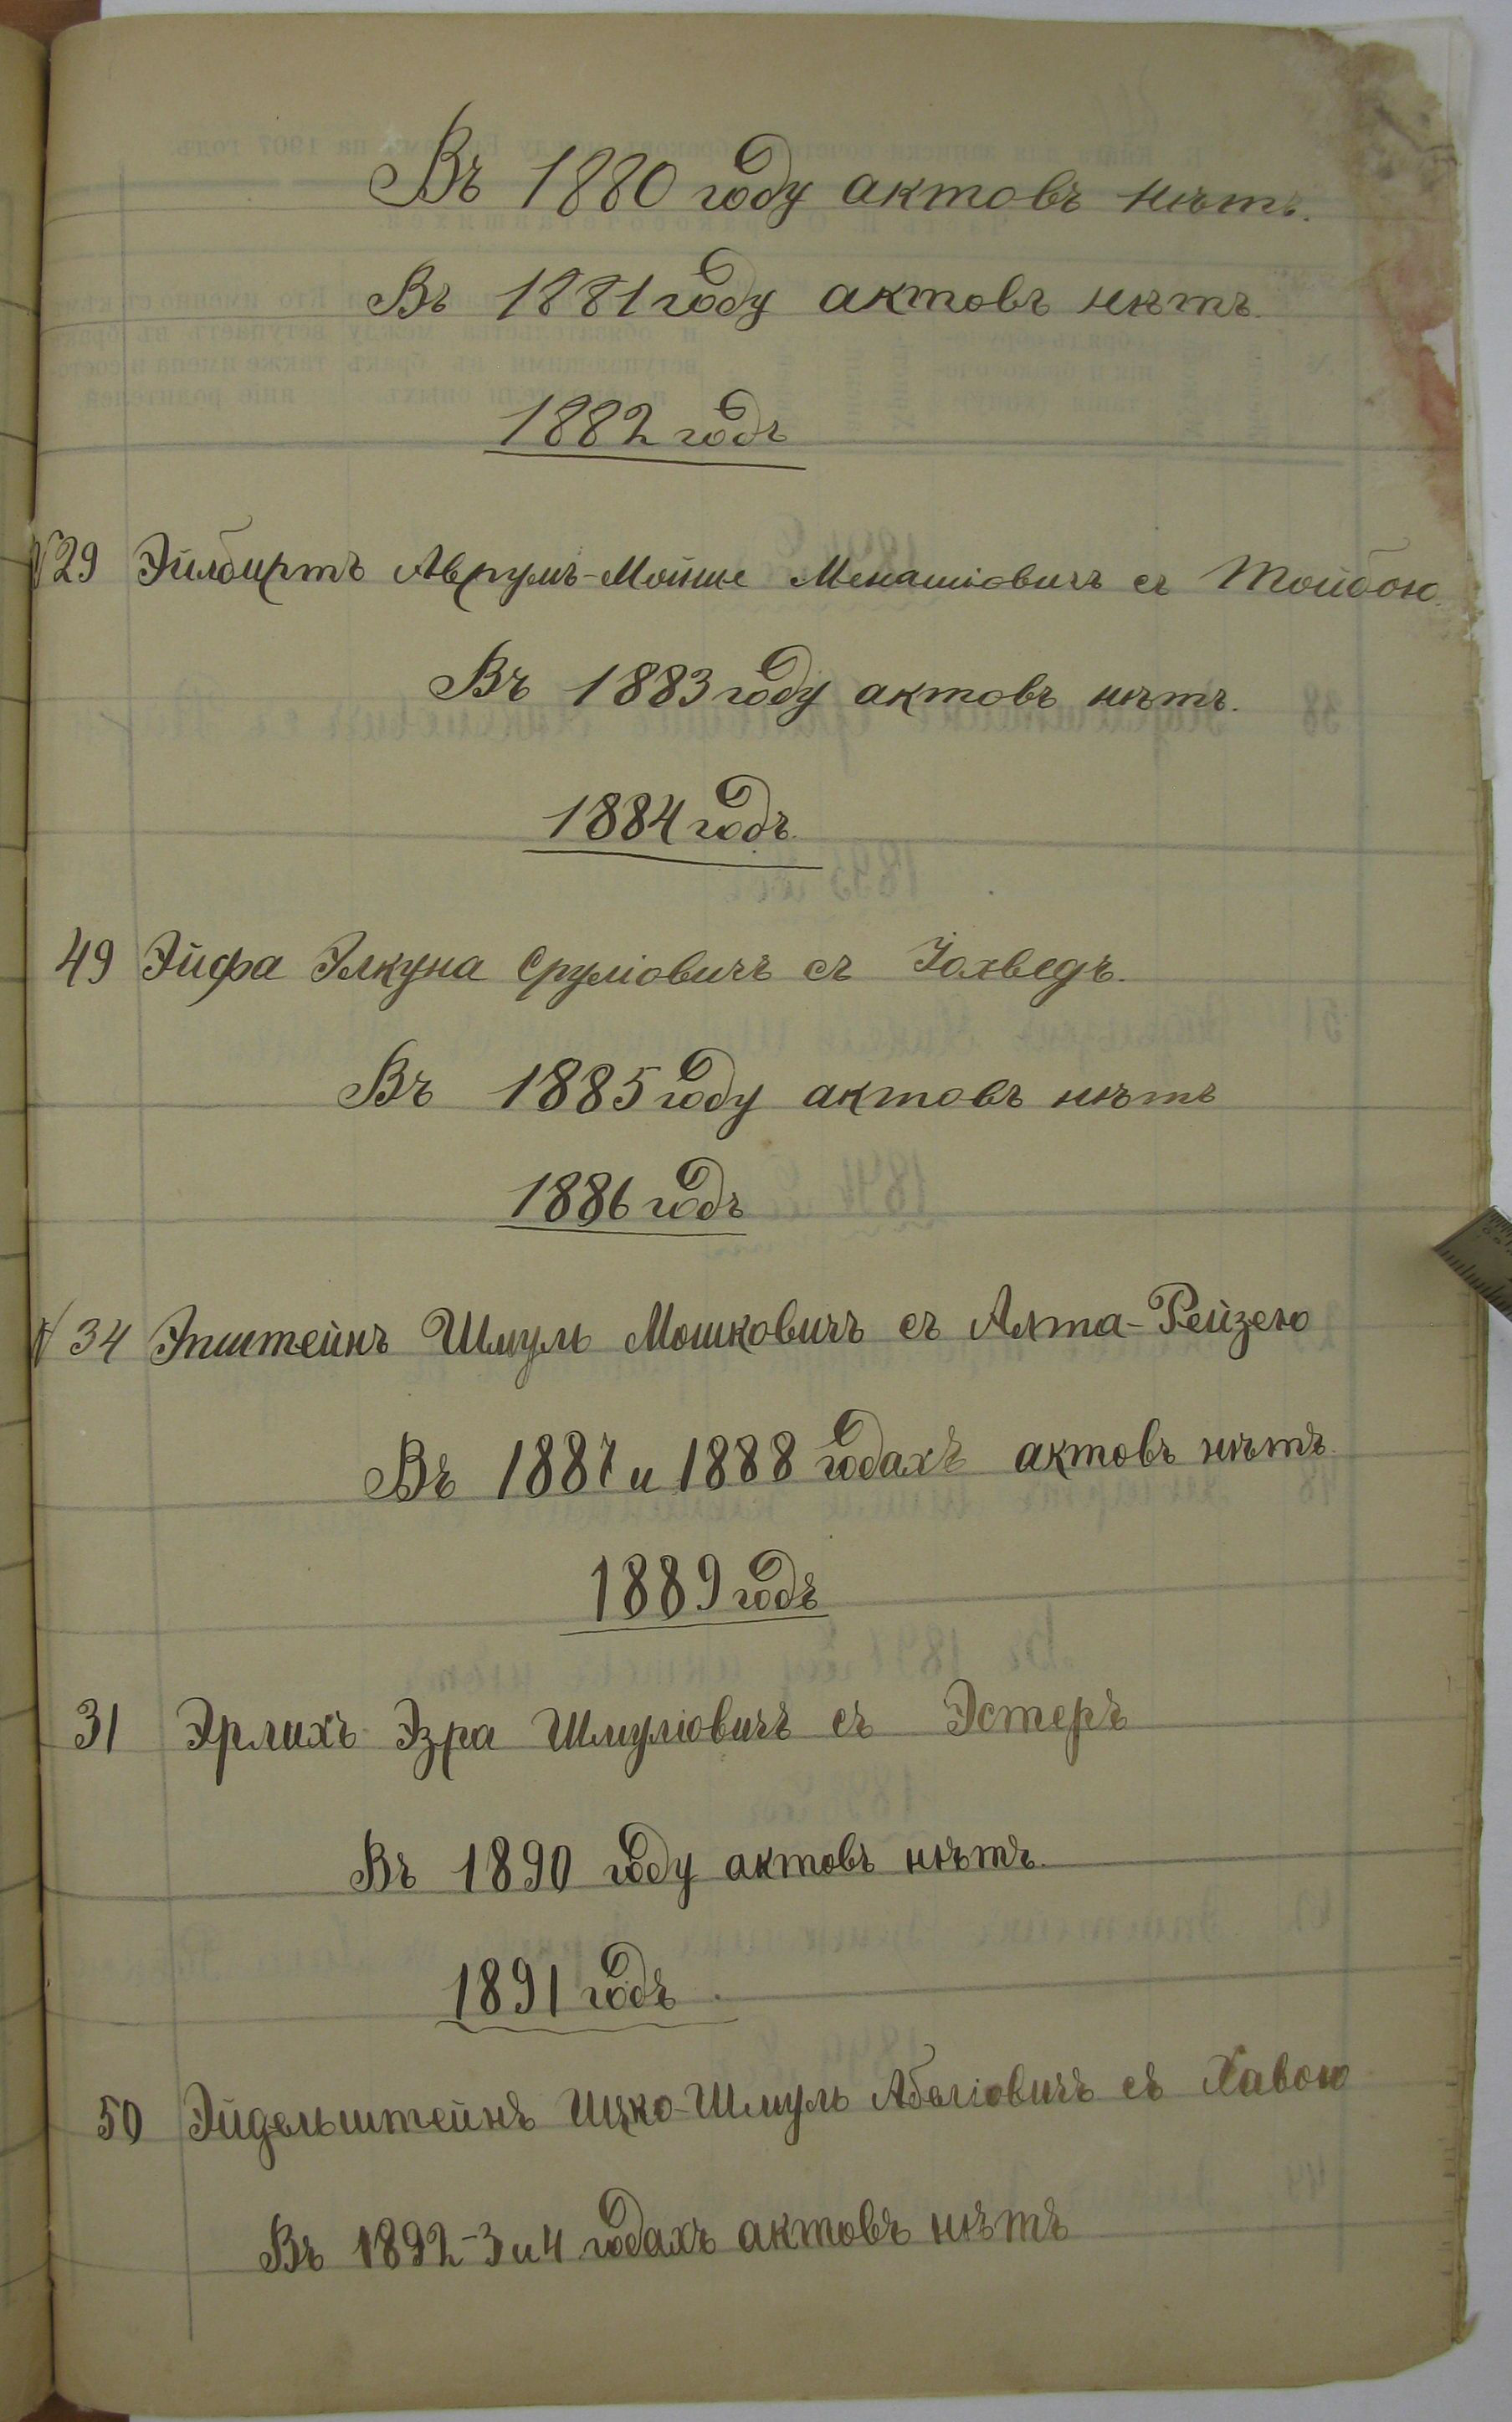 Въ 1880 году актовъ нѣтъ.
Въ 1881 году актовъ нѣтъ.
1882 годъ
№ 29 Эйлбиртъ Аврумъ-Мойше Менашіовичъ съ Тойбою.
Въ 1883 году актовъ нѣтъ.
1884 годъ.
49 Эйфа Элкуна Сруліовичъ съ Іохведъ.
Въ 1885 году актовъ нѣтъ
1886 годъ
№ 34 Эпштейнъ Шмуль Мошковичъ съ Алта-Рейзею
Въ 1887 и 1888 годахъ актовъ нѣтъ.
1889 годъ
31 Эрлихъ Эзра Шмуліовичъ съ Эстеръ
Въ 1890 году актовъ нѣтъ.
1891 годъ.
50 Эйдельштейнъ Ицко-Шмуль Абеліовичъ съ Хавою
Въ 1892-3 и 4 годахъ актовъ нѣтъ